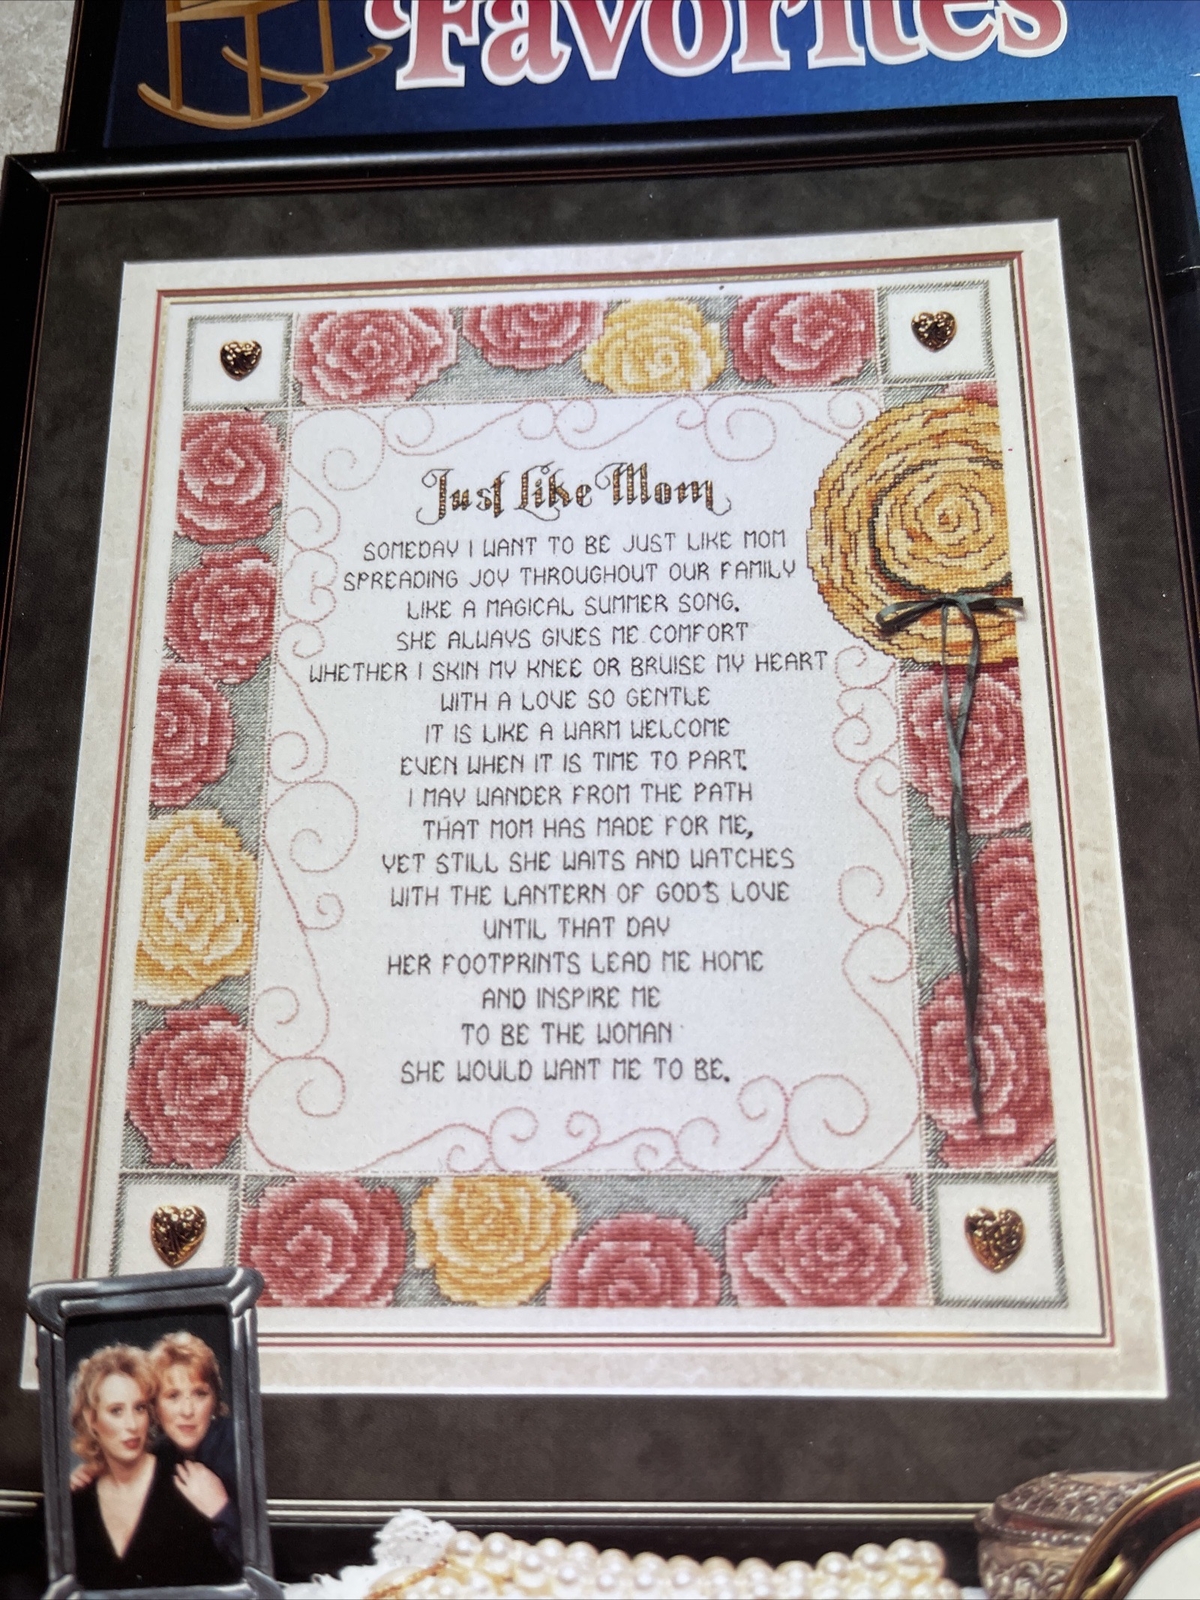 Favorites
Just Like Mom
SOMEDAY I WANT TO BE JUST LIKE MOM
SPREADING JOY THROUGHOUT OUR FAMILY
LIKE A MAGICAL SUMMER SONG.
SHE ALWAYS GIVES ME COMFORT
WHETHER I SKIN MY KNEE OR BRUISE MY HEART
WITH A LOVE SO GENTLE
IT IS LIKE A WARM WELCOME
EVEN WHEN IT IS TIME TO PART.
I MAY WANDER FROM THE PATH
THAT MOM HAS MADE FOR ME,
YET STILL SHE WAITS AND WATCHES
WITH THE LANTERN OF GOD'S LOVE
UNTIL THAT DAY
HER FOOTPRINTS LEAD ME HOME
AND INSPIRE ME
TO BE THE WOMAN
SHE WOULD WANT ME TO BE.